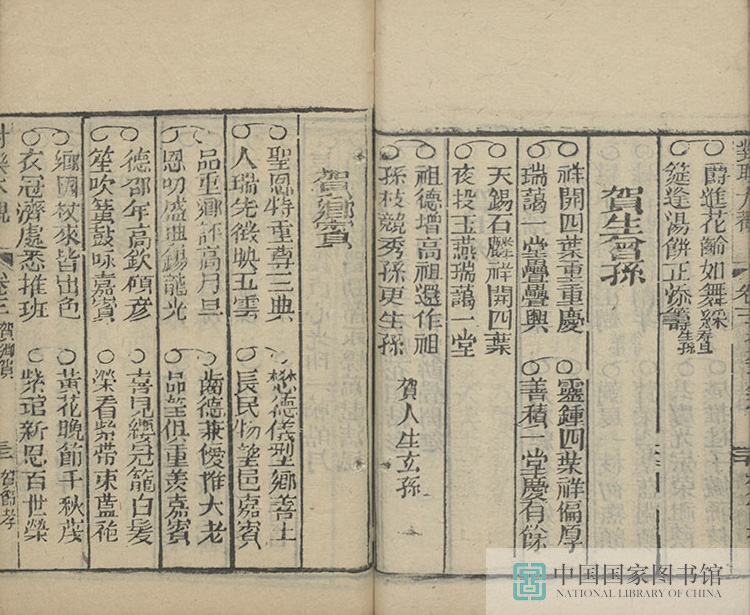 對聯大觀
卷三
爵進花齡如舞綵
筵逢湯餅正添籌
賀生曾孫
祥開四葉重重慶
瑞藹一堂疊疊興
靈鍾四葉祥偏厚
善積一堂慶有餘
天錫石麟祥開四葉
夜投玉燕瑞藹一堂
祖德增高祖還作祖
孫枝競秀孫更生孫
賀人生玄孫
賀鄉賓
聖恩特重尊三典
人瑞先徵映五雲
懋德儀型鄉善士
長民物望邑嘉賓
品重鄉評高月旦
恩叨盛典錫龍光
齒德兼優推大老
品望俱重羨嘉賓
德邵年高欽碩彥
笙吹簧鼓咏嘉賓
喜見纓冠籠白髮
榮看紫帶束藍袍
鄉國杖來皆出色
衣冠濟處悉推班
黃花晚節千秋茂
紫綻新恩百世榮
卷三
賀鄉賓
三
賀節孝
中国国家图书馆
NATIONAL LIBRARY OF CHINA